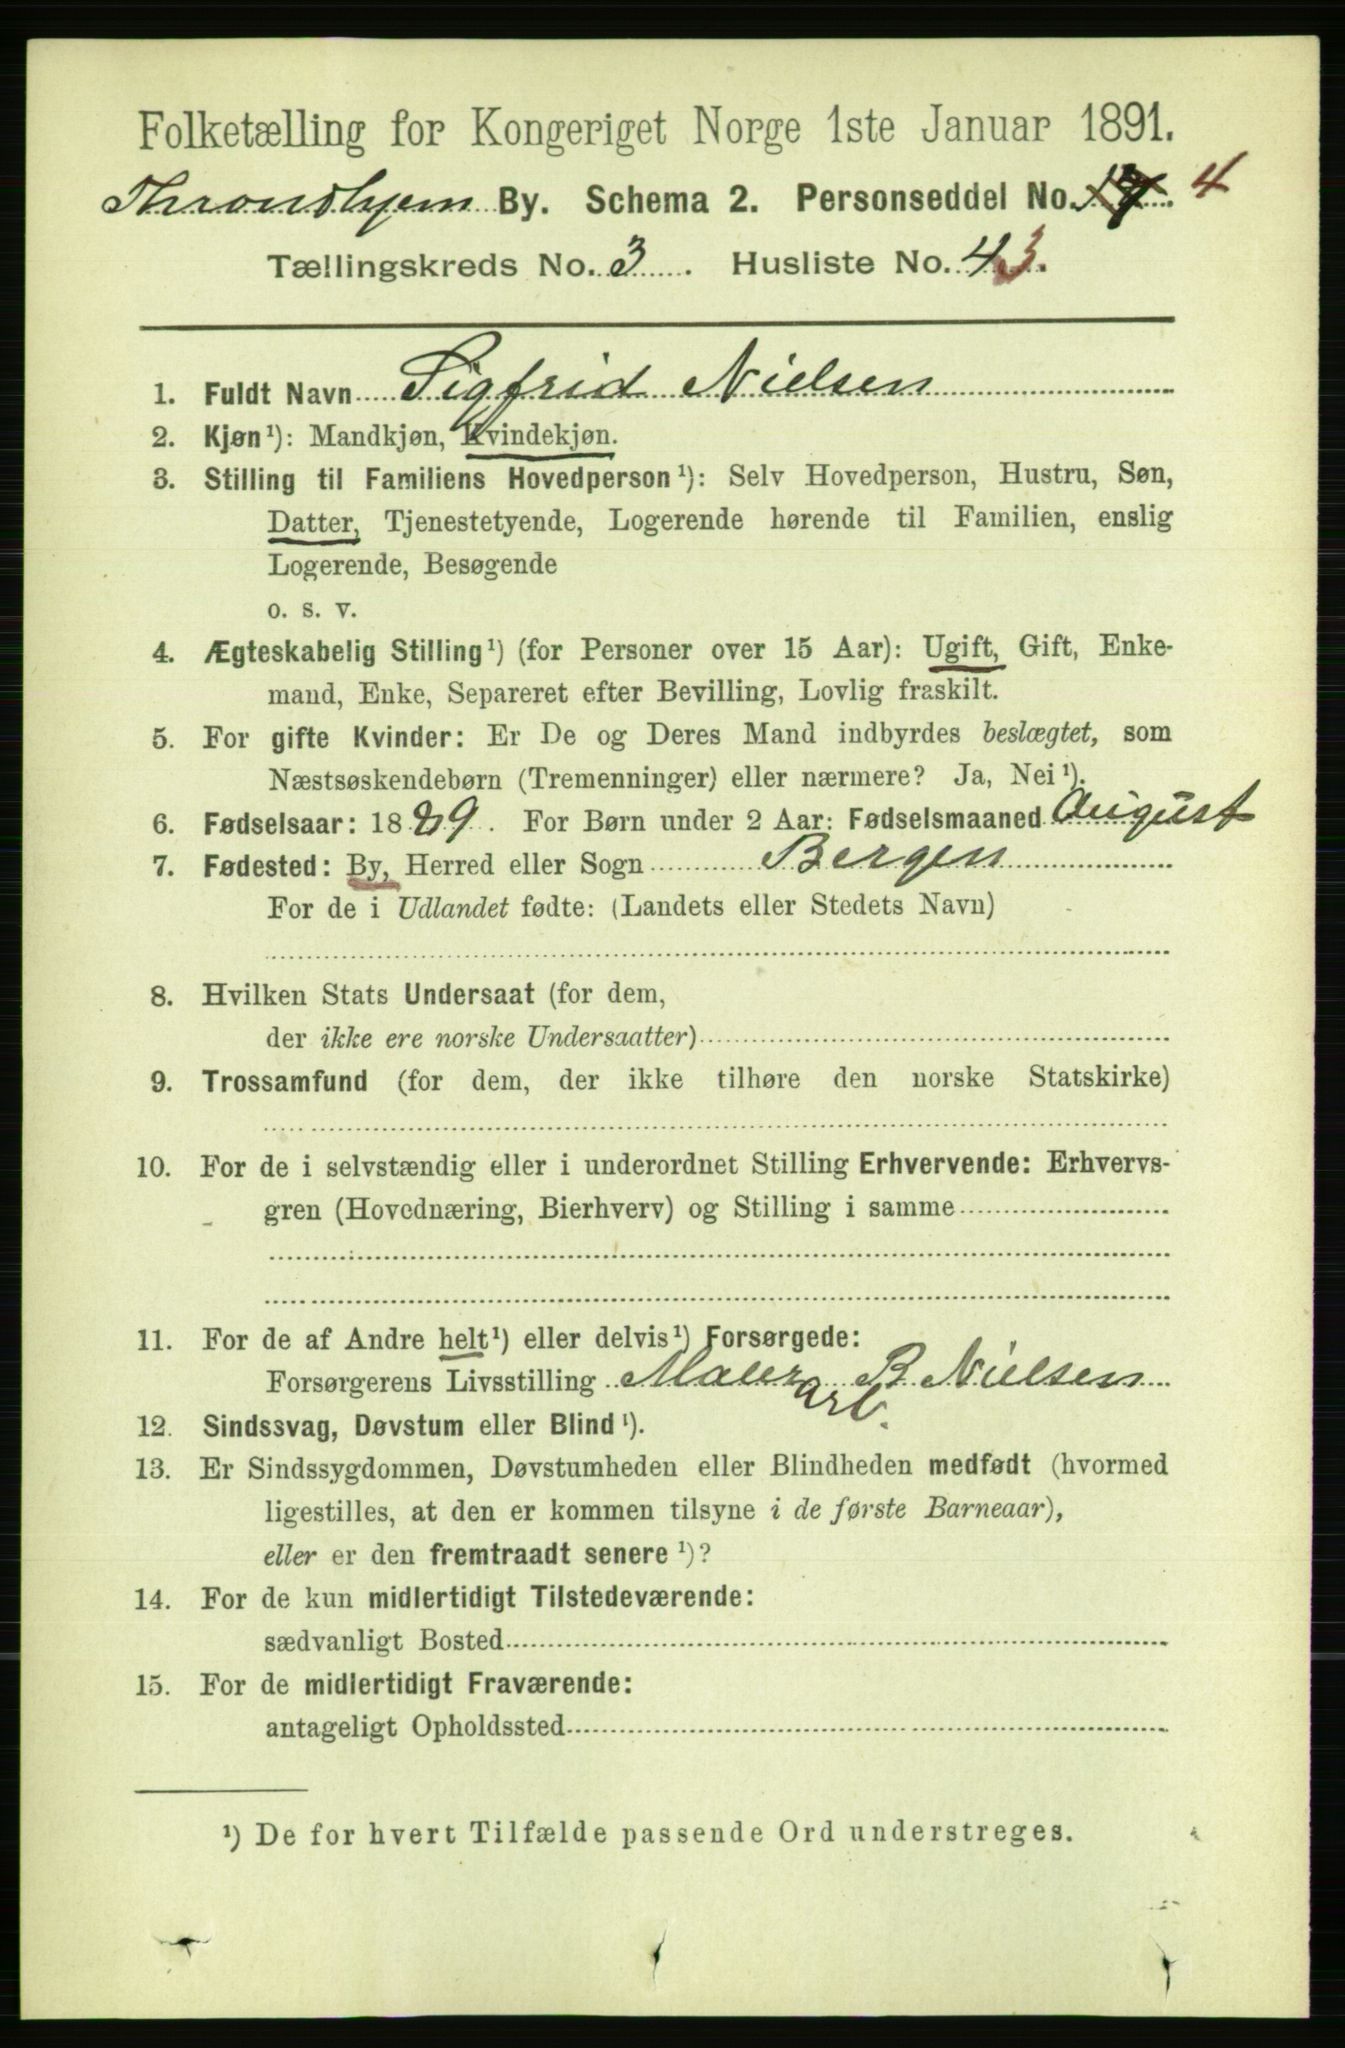 Folketælling for Kongeriget Norge 1ste Januar 1891.
Throndhjem By. Schema 2. Personseddel No. 4
Tællingskreds No. 3. Husliste No. 43.
1. Fuldt Navn Sigfrid Nielsen
2. Kjøn¹): Mandkjøn, Kvindekjøn.
3. Stilling til Familiens Hovedperson¹): Selv Hovedperson, Hustru, Søn,
Datter, Tjenestetyende, Logerende hørende til Familien, enslig
Logerende, Besøgende
o. s. v.
4. Ægteskabelig Stilling¹) (for Personer over 15 Aar): Ugift, Gift, Enke-
mand, Enke, Separeret efter Bevilling, Lovlig fraskilt.
5. For gifte Kvinder: Er De og Deres Mand indbyrdes beslægtet, som
Næstsøskendebørn (Tremenninger) eller nærmere? Ja, Nei¹).
6. Fødselsaar: 1889. For Børn under 2 Aar: Fødselsmaaned August
7. Fødested: By, Herred eller Sogn Bergen
For de i Udlandet fødte: (Landets eller Stedets Navn)
8. Hvilken Stats Undersaat (for dem,
der ikke ere norske Undersaatter)
9. Trossamfund (for dem, der ikke tilhøre den norske Statskirke)
10. For de i selvstændig eller i underordnet Stilling Erhvervende: Erhvervs-
gren (Hovednæring, Bierhverv) og Stilling i samme
11. For de af Andre helt¹) eller delvis¹) Forsørgede:
Forsørgerens Livsstilling Malerarb. B. Nielsen
12. Sindssvag, Døvstum eller Blind¹).
13. Er Sindssygdommen, Døvstumheden eller Blindheden medfødt (hvormed
ligestilles, at den er kommen tilsyne i de første Barneaar),
eller er den fremtraadt senere¹)?
14. For de kun midlertidigt Tilstedeværende:
sædvanligt Bosted
15. For de midlertidigt Fraværende:
antageligt Opholdssted
¹) De for hvert Tilfælde passende Ord understreges.